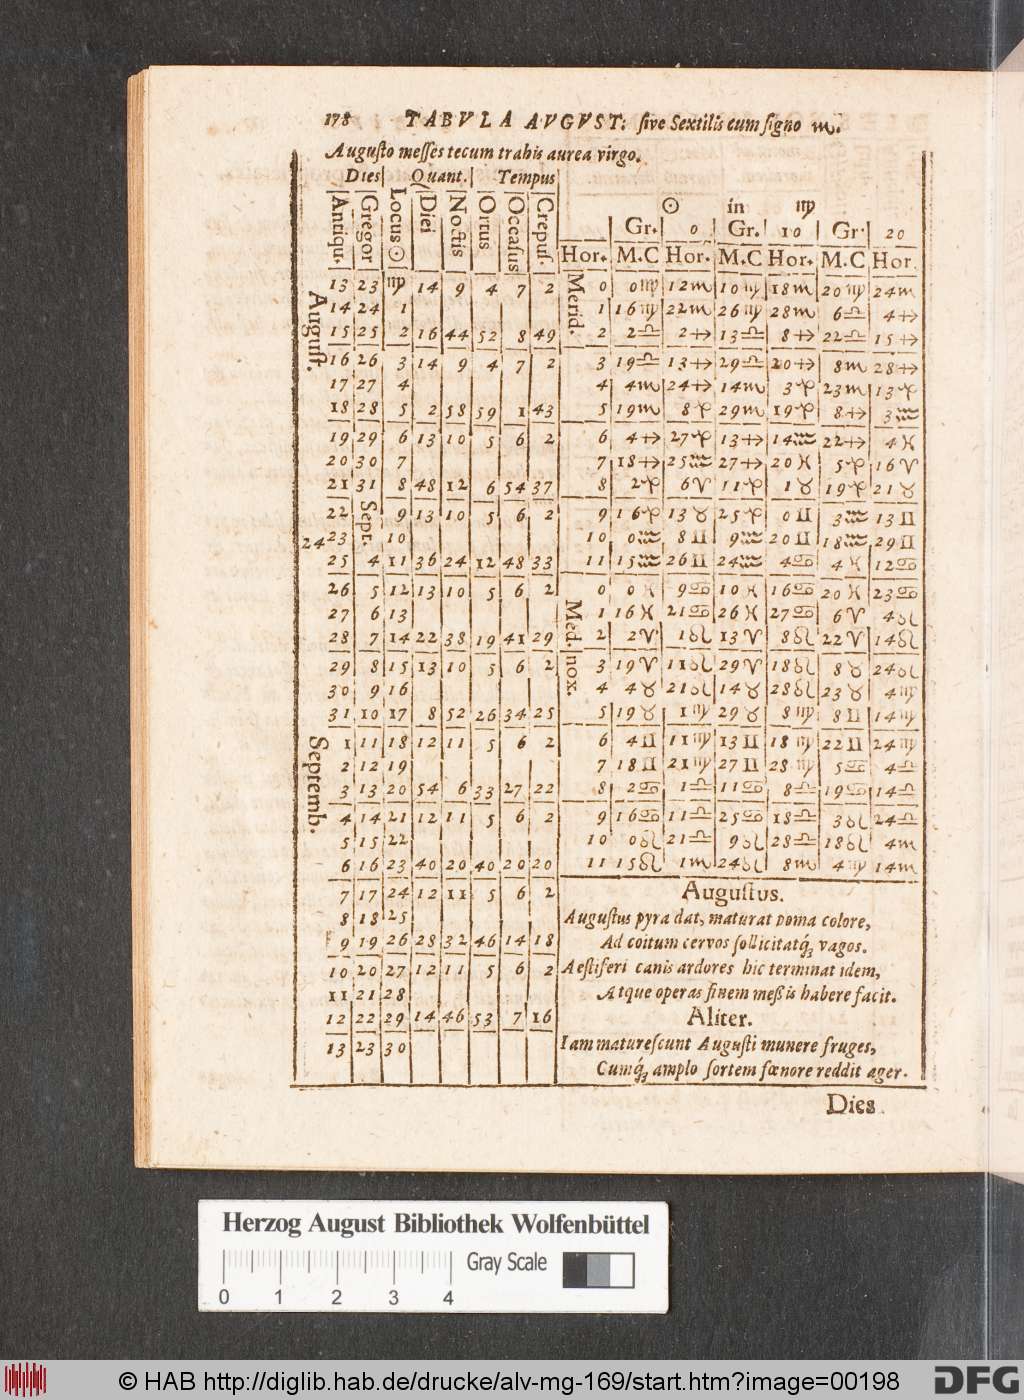 178 TABVLA AVGVST: ſive Sextilis cum ſigno ♏.
Auguſto meſſes tecum trahis aurea virgo.
Dies Quant. Tempus
Antiqu. Gregor Locus☉ Diei Noctis Ortus Occaſus Crepuſ.
13 23 ♍ 14 9 4 7 2
14 24 1
15 25 2 16 44 52 8 49
16 26 3 14 9 4 7 2
17 27 4
18 28 5 2 58 59 1 43
19 29 6 13 10 5 6 2
20 30 7
21 31 8 48 12 6 54 37
Auguſt.
Sept.
22 9 13 10 5 6 2
24 23 10
25 4 11 36 24 12 48 33
26 5 12 13 10 5 6 2
27 6 13
28 7 14 22 38 19 41 29
29 8 15 13 10 5 6 2
30 9 16
31 10 17 8 52 26 34 25
Septemb.
1 11 18 12 11 5 6 2
2 12 19
3 13 20 54 6 33 27 22
4 14 21 12 11 5 6 2
5 15 22
6 16 23 40 20 40 20 20
7 17 24 12 11 5 6 2
8 18 25
9 19 26 28 32 46 14 18
10 20 27 12 11 5 6 2
11 21 28
12 22 29 14 46 53 7 16
13 23 30
☉ in ♍
Gr. 0 Gr. 10 Gr. 20
Hor. M.C Hor. M.C Hor. M.C Hor.
Merid.
0 0♍ 12♏ 10♍ 18♏ 20♍ 24♏
1 16♍ 22♏ 26♍ 28♏ 6♎ 4♐
2 2♎ 2♐ 13♎ 8♐ 22♎ 15♐
3 19♎ 13♐ 29♎ 20♐ 8♏ 28♐
4 4♏ 24♐ 14♏ 3♑ 23♏ 13♑
5 19♏ 8♑ 29♏ 19♑ 8♐ 3♒
6 4♐ 27♑ 13♐ 14♒ 22♐ 4♓
7 18♐ 25♒ 27♐ 20♓ 5♑ 16♈
8 2♑ 6♈ 11♑ 1♉ 19♑ 21♉
9 16♑ 13♉ 25♑ 0♊ 3♒ 13♊
10 0♒ 8♊ 9♒ 20♊ 18♒ 29♊
11 15♒ 26♊ 24♒ 4♋ 4♓ 12♋
Med. nox.
0 0♓ 9♋ 10♓ 16♋ 20♓ 23♋
1 16♓ 21♋ 26♓ 27♋ 6♈ 4♌
2 2♈ 1♌ 13♈ 8♌ 22♈ 14♌
3 19♈ 11♌ 29♈ 18♌ 8♉ 24♌
4 4♉ 21♌ 14♉ 28♌ 23♉ 4♍
5 19♉ 1♍ 29♉ 8♍ 8♊ 14♍
6 4♊ 11♍ 13♊ 18♍ 22♊ 24♍
7 18♊ 21♍ 27♊ 28♍ 5♋ 4♎
8 2♋ 1♎ 11♋ 8♎ 19♋ 14♎
9 16♋ 11♎ 25♋ 18♎ 3♌ 24♎
10 0♌ 21♎ 9♌ 28♎ 18♌ 4♏
11 15♌ 1♏ 24♌ 8♏ 4♍ 14♏
Auguſtus.
Auguſtus pyra dat, maturat poma colore,
Ad coitum cervos ſollicitatq́ꝫ vagos.
Aeſtiferi canis ardores hic terminat idem,
Atque operas finem meßis habere facit.
Aliter.
Iam matureſcunt Auguſti munere fruges,
Cumq́ꝫ amplo ſortem fœnore reddit ager.
Dies.
Herzog August Bibliothek Wolfenbüttel
Gray Scale
0 1 2 3 4
© HAB http://diglib.hab.de/drucke/alv-mg-169/start.htm?image=00198
DFG